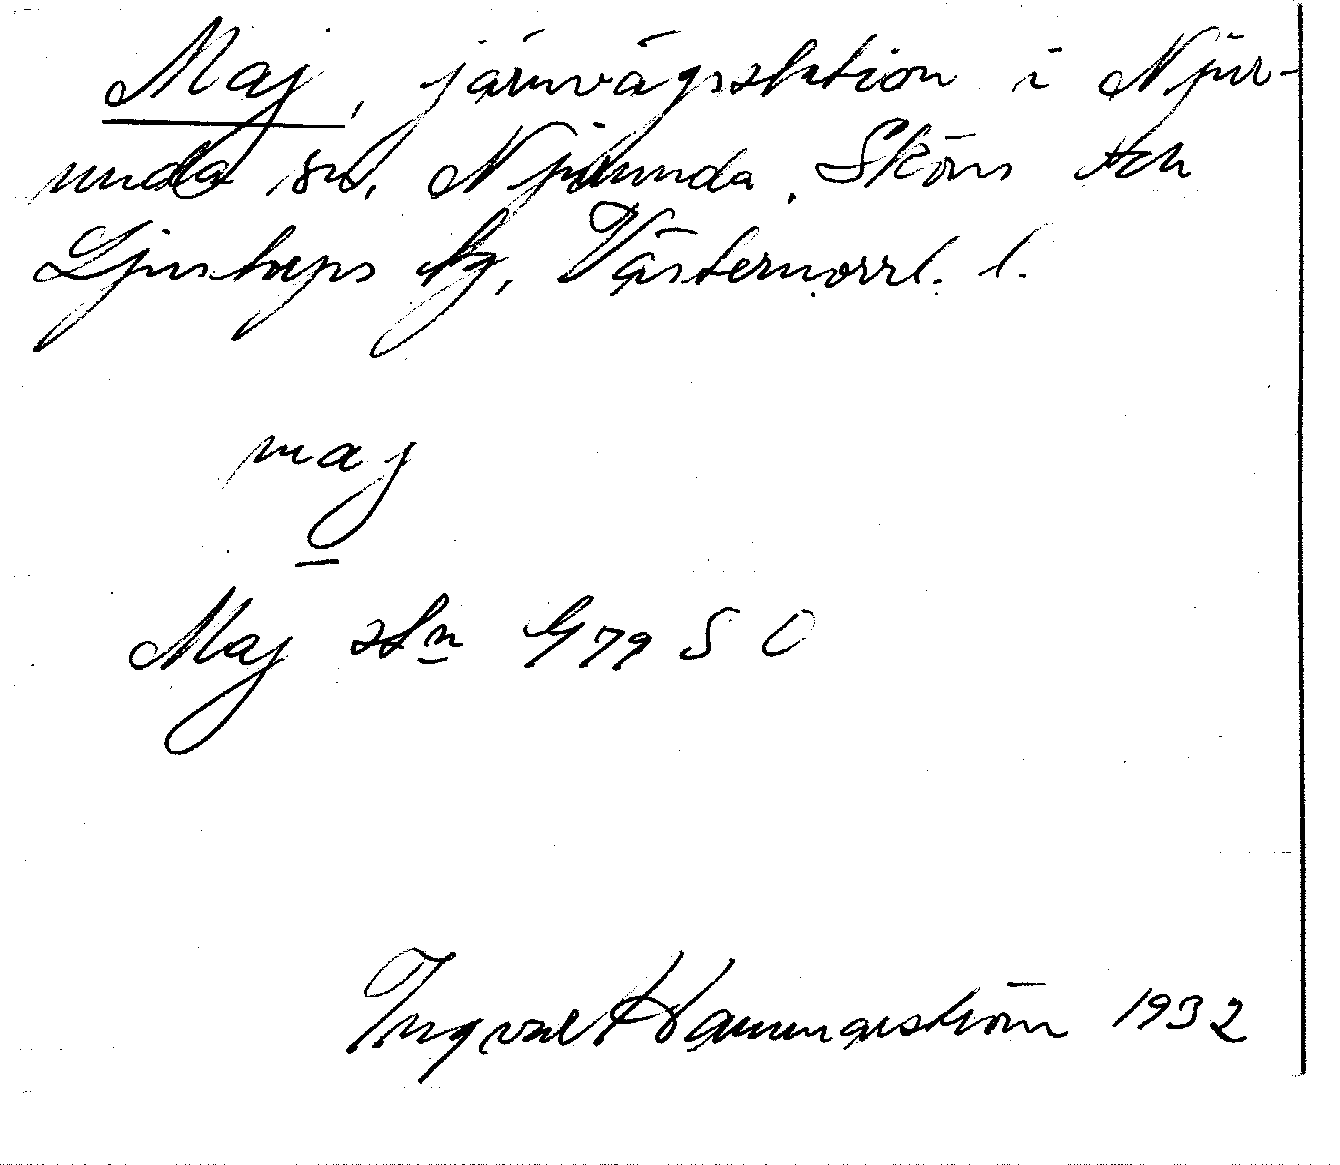 Maj, järnvägsstation i Njur-
unda sn. Njurunda, Sköns och
Ljustorps tg, Västernorrl. l.
maj
Maj stn G79 S O
Ingvar Hammarström 1932